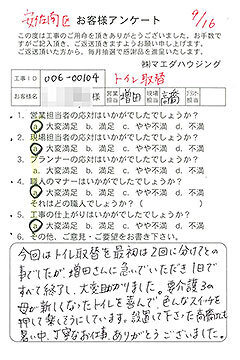 安佐南区 お客様アンケート 9/16
この度は工事のご用命を頂きありがとうございました。お手数で
すがご記入頂き、ご返送頂きますようお願い申し上げます。
ご返送頂いた方から、毎月抽選で感謝品を進呈いたします。
㈱マエダハウジング
工事ID 006-00104 トイレ取替
お客様名 様 営業担当 増田 現場担当 高橋 プラット担当
1. 営業担当者の応対はいかがでしたでしょうか?
a 大変満足 b. 満足 c. やや不満 d. 不満
2. 現場担当者の応対はいかがでしたでしょうか?
a 大変満足 b. 満足 c. やや不満 d. 不満
3. プランナーの応対はいかがでしたでしょうか?
a. 大変満足 b. 満足 c. やや不満 d. 不満
4. 職人のマナーはいかがでしたでしょうか?
a 大変満足 b. 満足 c. やや不満 d. 不満
それはどの職人でしょうか?( )
5. 工事の仕上がりはいかがでしたでしょうか?
a 大変満足 b. 満足 c. やや不満 d. 不満
6. その他、ご意見・ご要望をお書き下さい。
今回はトイレ取替を最初は2回に分けてとの
事でしたが、増田さんに急いでいただき1日で
すべて終了し、大変助かりました。要介護3の
母が新しくなったトイレを喜んで、色んなスイッチを
押して楽しそうにしています。設置して下さった高橋さんも
暑い中、丁寧なお仕事、ありがとうございました。